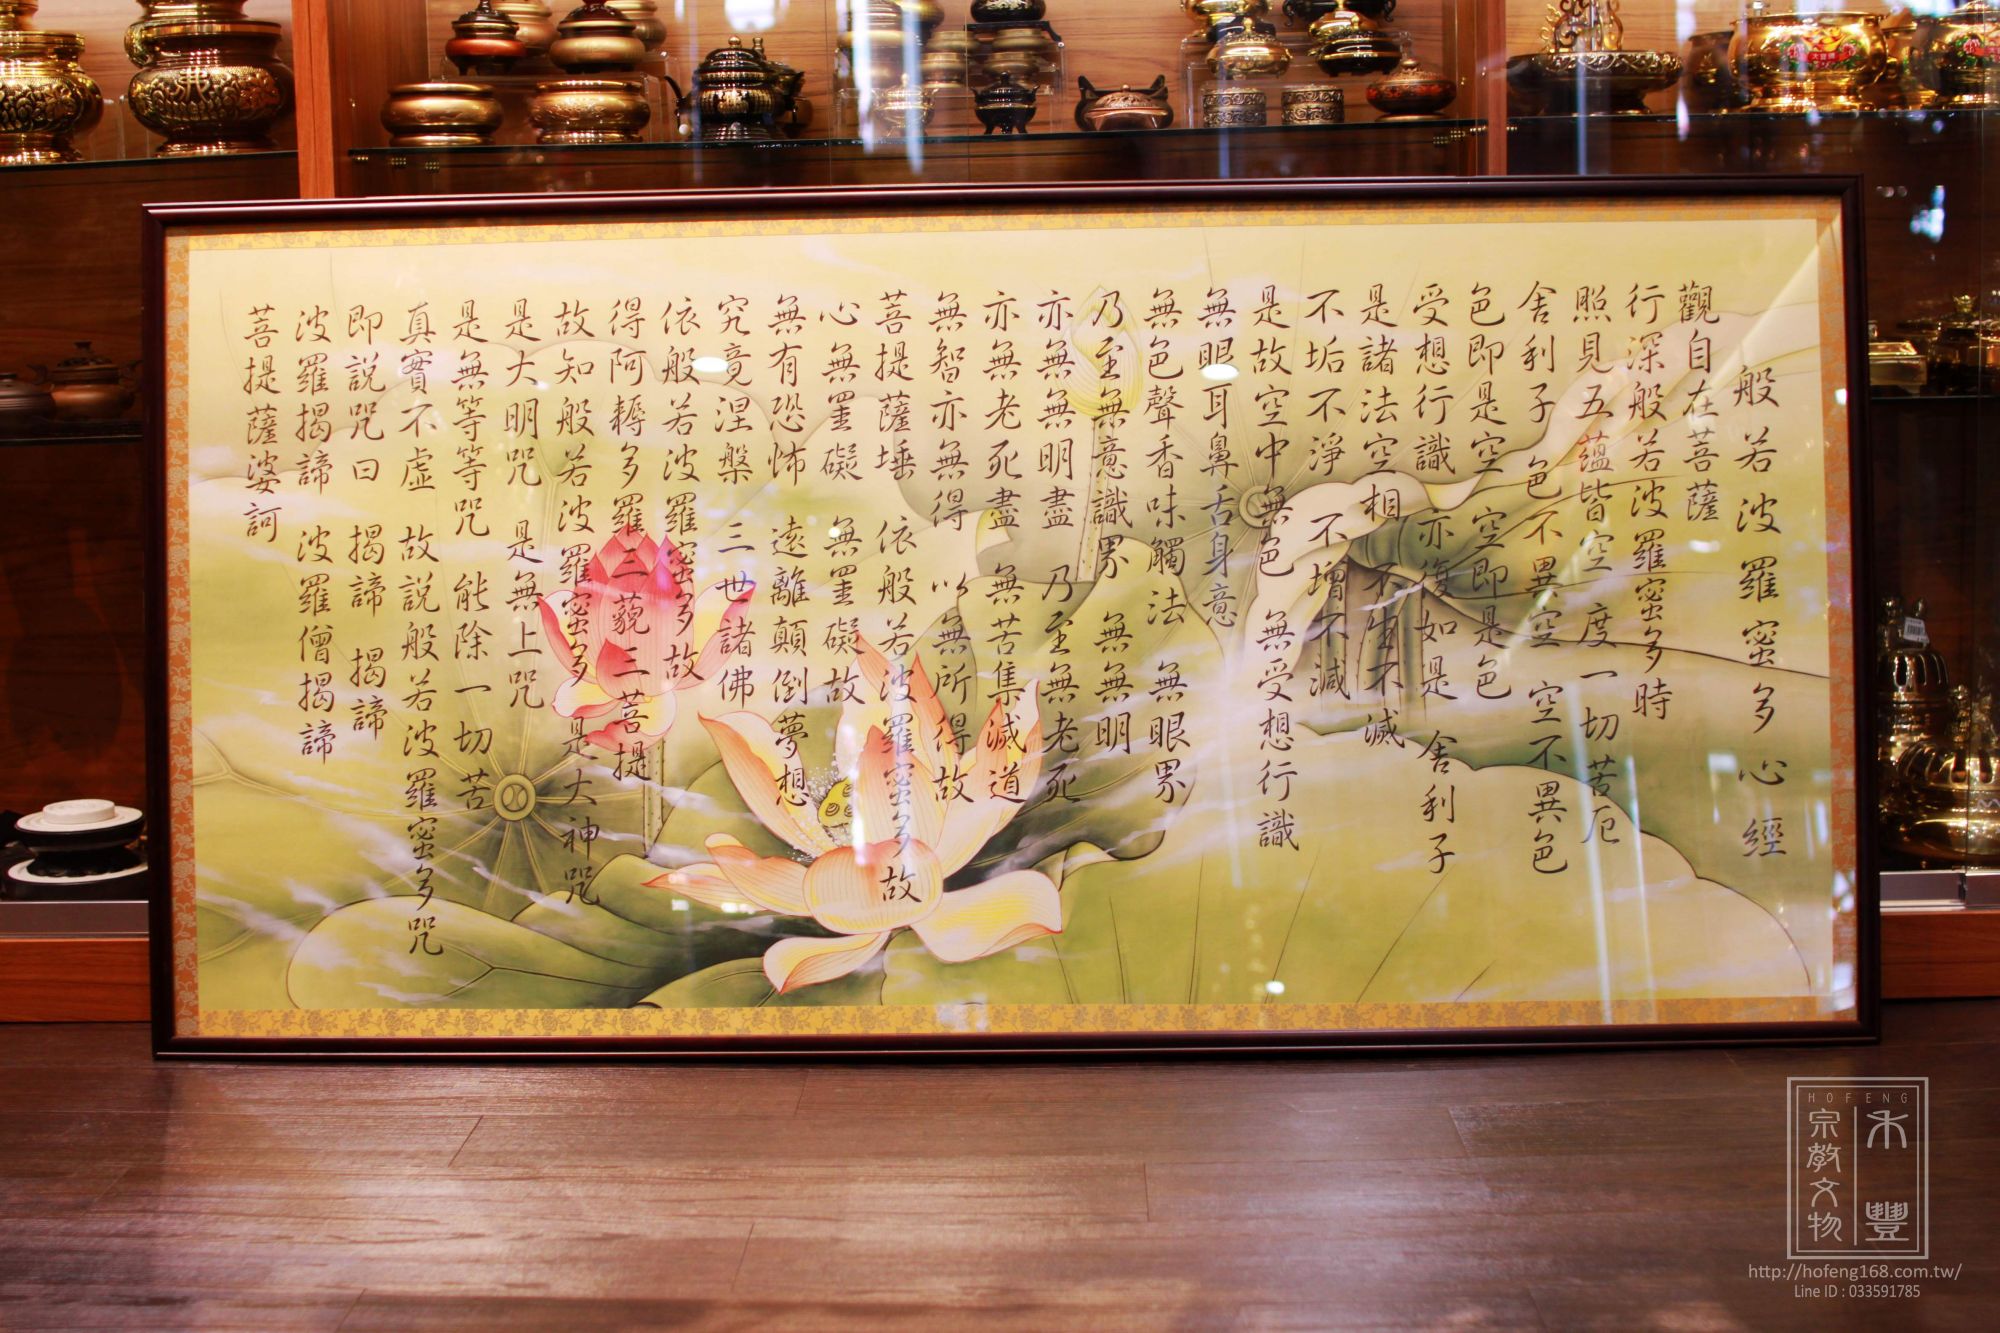 般若波羅蜜多心經
觀自在菩薩
行深般若波羅蜜多時
照見五蘊皆空 度一切苦厄
舍利子 色不異空 空不異色
色即是空 空即是色
受想行識 亦復如是 舍利子
是諸法空相 不生不滅
不垢不淨 不增不減
是故空中無色 無受想行識
無眼耳鼻舌身意
無色聲香味觸法 無眼界
乃至無意識界 無無明
亦無無明盡 乃至無老死
亦無老死盡 無苦集滅道
無智亦無得 以無所得故
菩提薩埵 依般若波羅蜜多故
心無罣礙 無罣礙故
無有恐怖 遠離顛倒夢想
究竟涅槃 三世諸佛
依般若波羅蜜多故
得阿耨多羅三藐三菩提
故知般若波羅蜜多 是大神咒
是大明咒 是無上咒
是無等等咒 能除一切苦
真實不虛 故說般若波羅蜜多咒
即說咒曰 揭諦 揭諦
波羅揭諦 波羅僧揭諦
菩提薩婆訶
佛
HOFENG
禾豐
宗教文物
http://hofeng168.com.tw/
Line ID : 033591785